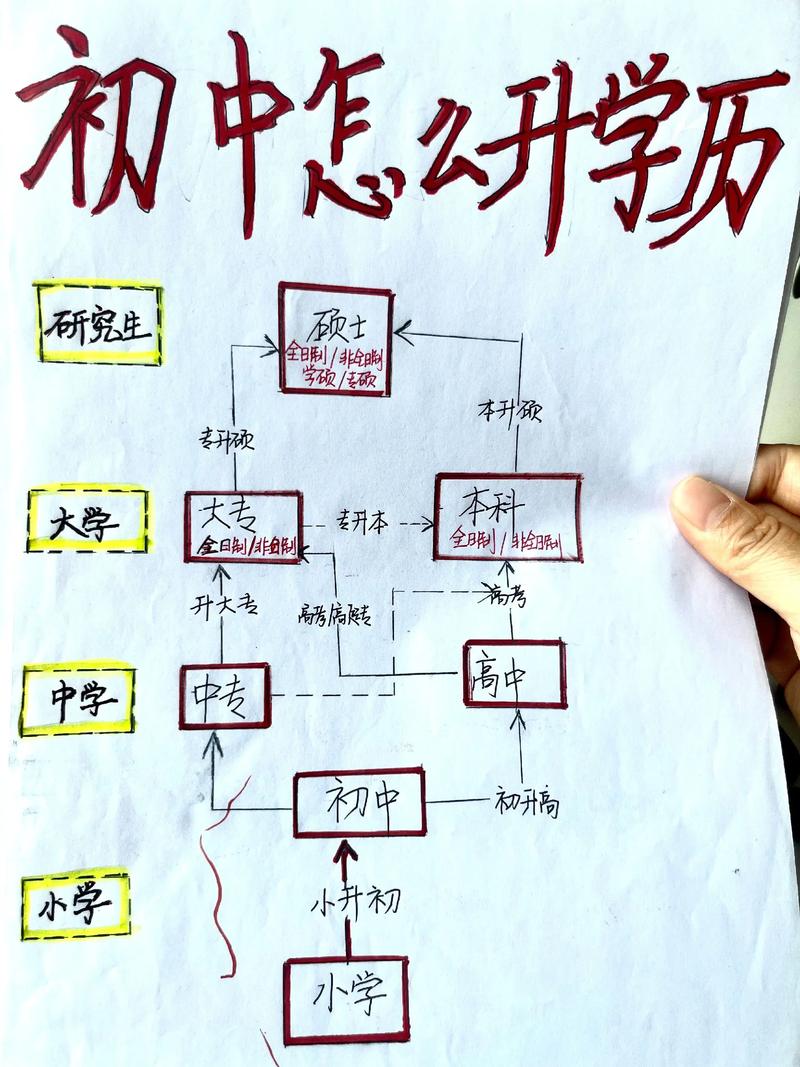 初中怎么升学历
研究生
硕士
全日制/非全日制
学硕/专硕
专升硕
本升硕
大学
大专
全日制/非全日制
专升本
本科
全日制/非全日制
升大专
高考/高
专
高考
中学
中专
高中
初中
初升高
小学
小升初
小学